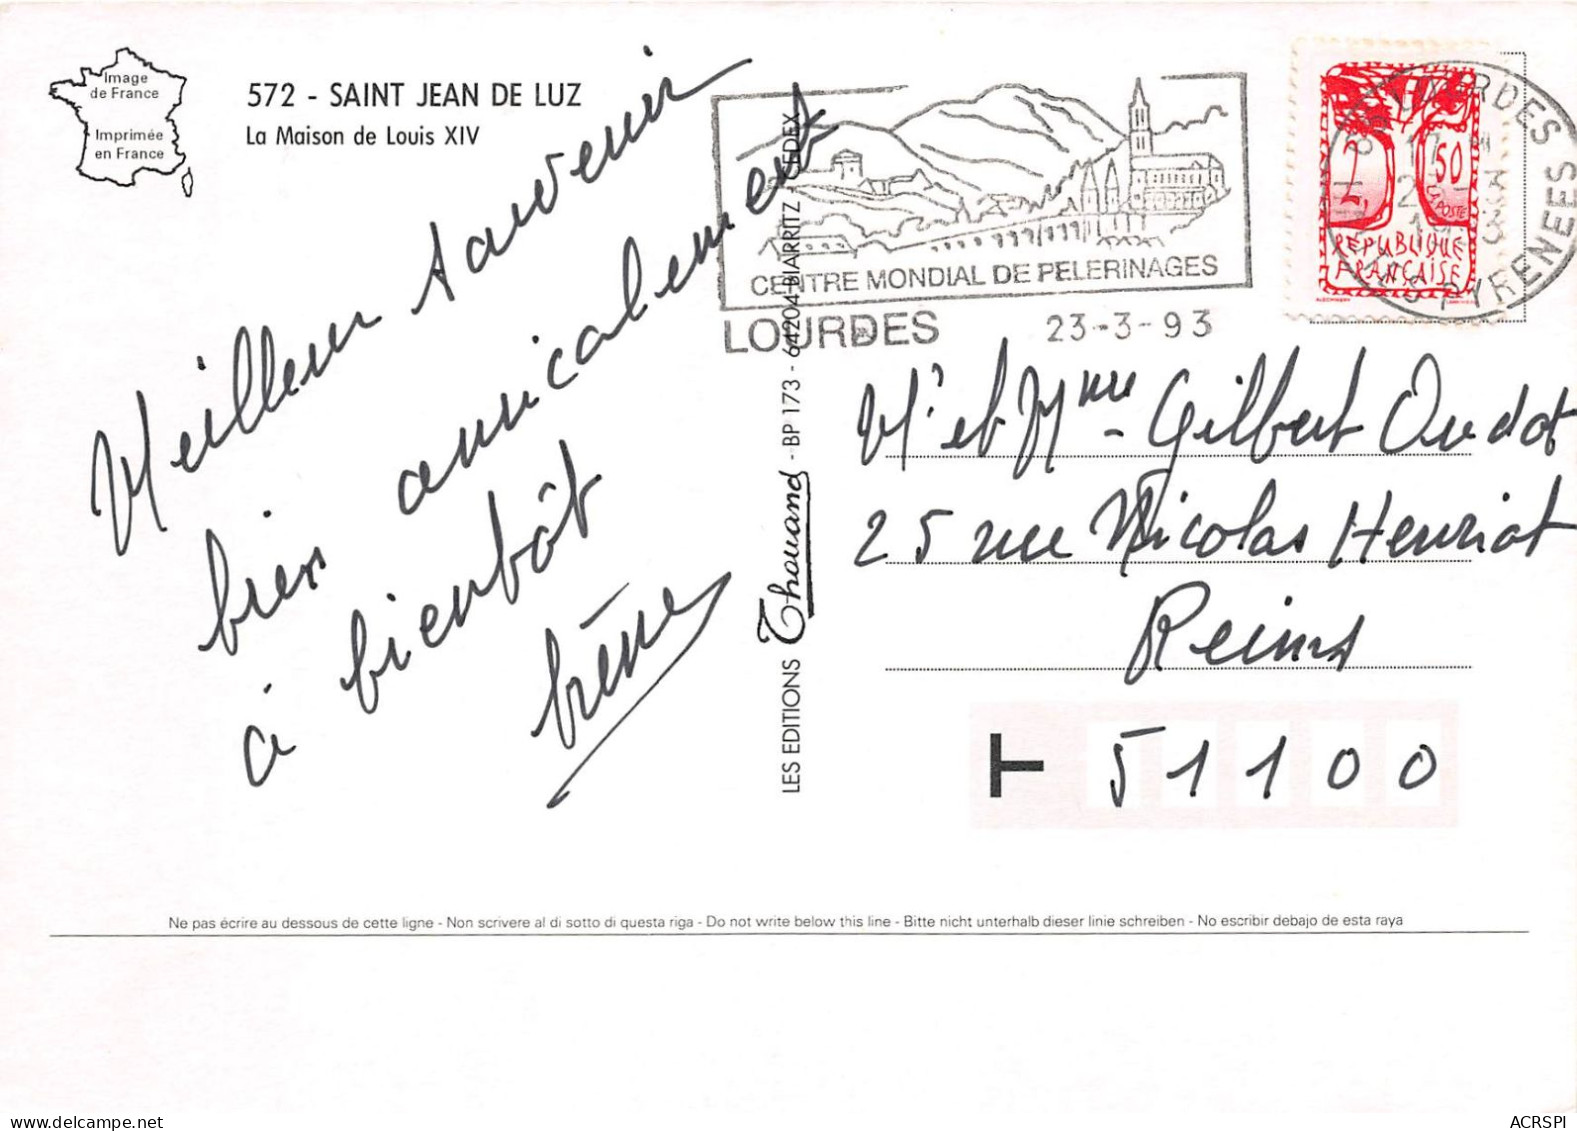 Image
de France
Imprimée
en France
572 - SAINT JEAN DE LUZ
La Maison de Louis XIV
Meilleur souvenir
bien amicalement
à bientôt
Irène
LES EDITIONS Thouand - BP 173 - 64204 BIARRITZ - CEDEX
CENTRE MONDIAL DE PELERINAGES
LOURDES 23-3-93
2,50
LA POSTE
REPUBLIQUE
FRANÇAISE
LOURDES
PYRENEES
Mr et Mme - Gilbert Oudot
25 rue Nicolas Henriot
Reims
T 51100
Ne pas écrire au dessous de cette ligne - Non scrivere al di sotto di questa riga - Do not write below this line - Bitte nicht unterhalb dieser linie schreiben - No escribir debajo de esta raya
ACRSPI